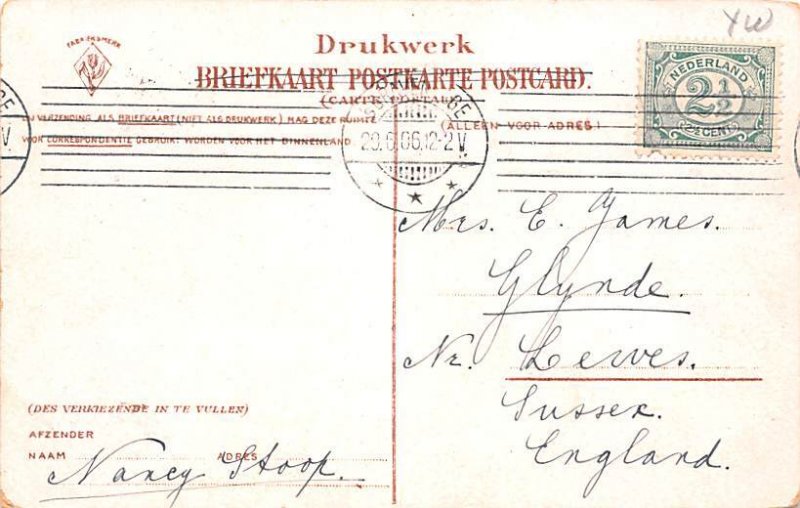 XW
FABRIEKSMERK
Drukwerk
BRIEFKAART POSTKARTE POSTCARD.
(CARTE POSTALE)
BIJ VERZENDING ALS BRIEFKAART (NIET ALS DRUKWERK) MAG DEZE RUIMTE
(ALLEEN VOOR ADRES)
VOOR CORRESPONDENTIE GEBRUIKT WORDEN VOOR HET BINNENLAND
NEDERLAND
2½
2½ CENT
29.6.06.12-2V
Mrs. E. James.
Glynde.
Nr. Lewes.
Sussex.
England.
(DES VERKIEZENDE IN TE VULLEN)
AFZENDER
NAAM ADRES
Nancy Stoop.